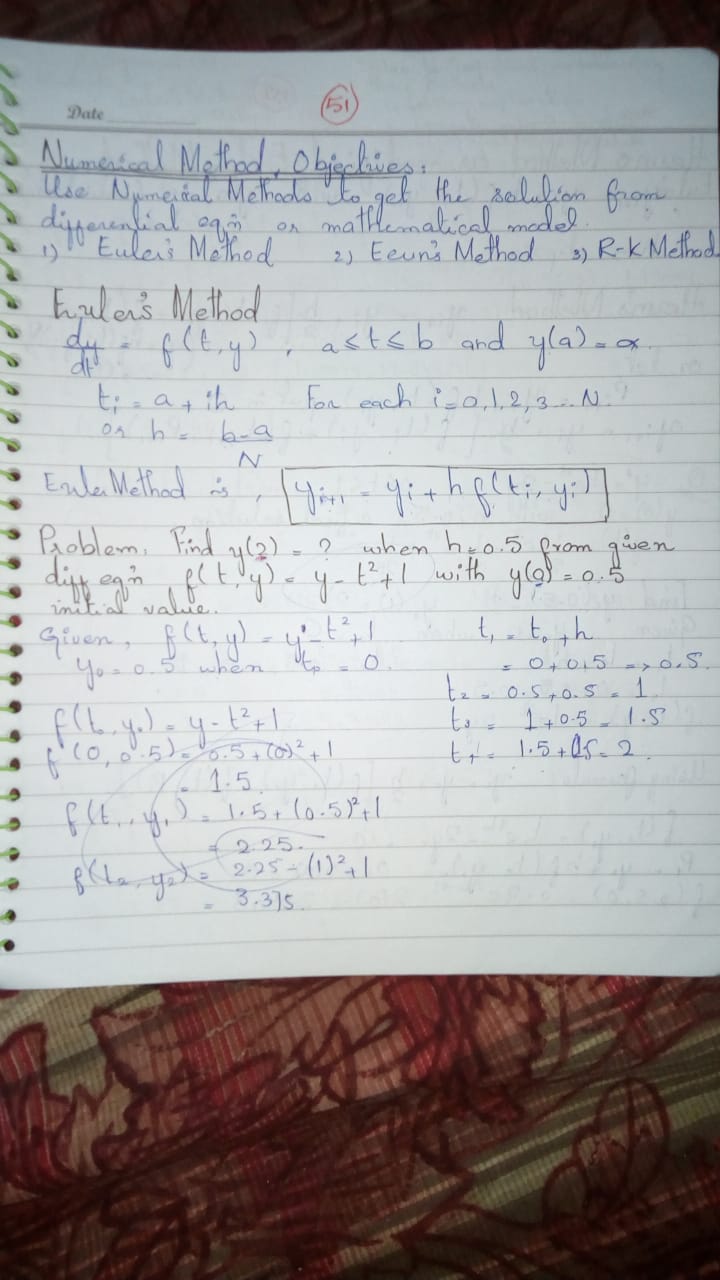 Date
51
Numerical Method, Objectives:
Use Numerical Methods to get the solution from
differential eqn or mathematical model.
1) Euler's Method 2) Eeun's Method 3) R-K Method
Euler's Method
dy/dt = f(t,y), a≤t≤b and y(a) = α.
ti = a + ih For each i=0,1,2,3...N.
or h = b-a/N
Euler Method is, yi+1 = yi + h f(ti, yi)
Problem. Find y(2) = ? when h=0.5 from given
diff eqn f(t,y) = y-t²+1 with y(0) = 0.5
initial value.
Given, f(t,y) = y-t²+1
y0 = 0.5 when t0 = 0.
t1 = t0+h
= 0+0.5 => 0.5
t2 = 0.5+0.5 = 1
t3 = 1+0.5 = 1.5
t4 = 1.5+0.5= 2
f(t0, y0) = y-t²+1
f(0, 0.5) = 0.5+(0)²+1
= 1.5
f(t1, y1) = 1.5+(0.5)²+1
= 2.25.
f(t2, y2) = 2.25-(1)²+1
= 3.375